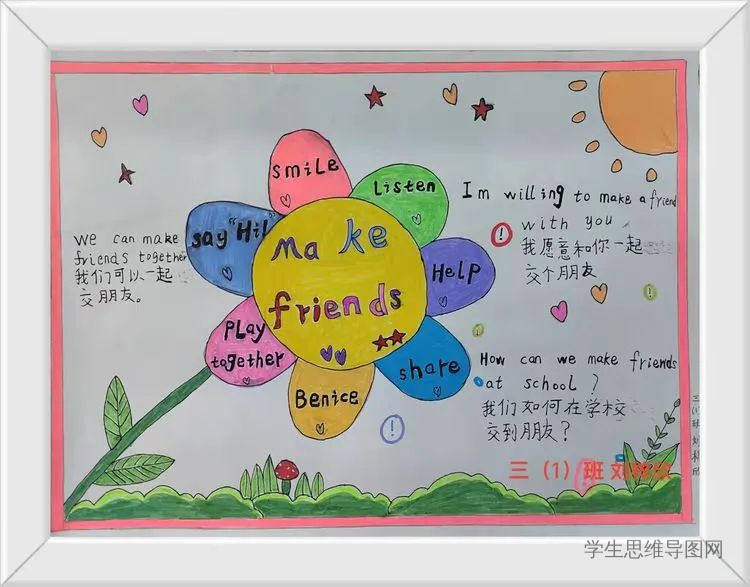 smile
Listen
Help
share
Benice
PLay
together
say "Hi!"
Make
friends
We can make
friends together
我们可以一起
交朋友。
Im willing to make a friend
with you
我愿意和你一起
交个朋友
How can we make friends
at school?
我们如何在学校
交到朋友?
三(1)班 刘
三(1)班 刘
学生思维导图网